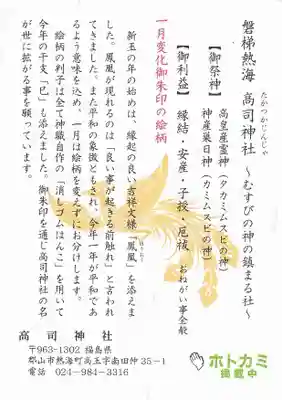 磐梯熱海 高司神社 ～むすびの神の鎮まる社～
たかつかじんじゃ
【御祭神】 高皇産霊神(タカミムスビの神)
神産巣日神(カミムスビの神)
【御利益】 縁結・安産・子授・厄祓 おねがい事全般
一月変化御朱印の絵柄
新玉の年の始めは、縁起の良い吉祥文様「鳳凰」を添えま
した。鳳凰が現れるのは「良い事が起きる前触れ」と言われ
てきました。また平和の象徴ともされ、今年一年が平和であ
るよう意味を込め、一月は絵柄を変えずにお分けします。
絵柄の判子は全て神職自作の「消しゴムはんこ」を用いて
今年の干支「巳」も添えました。御朱印を通じ高司神社の名
が世に拡がる事を願っています。
高司神社
〒963-1302 福島県
郡山市熱海町高玉字南田仲35-1
電話 024-984-3316
ホトカミ
掲載中